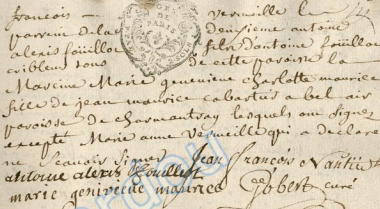 françois — vermeille le
parrein de la deusieme antoine
alexis fouilloc fils d'antoine fouilloc
cribleur sous de cette paroisse la
Mareine Marie genevieve charlotte maurice
fille de jean maurice cabartier a bel air
paroisse de charmantray lesquels ont signez
excepté Marie anne vermeille qui a declaré
ne scavoir signer Jean François
antoine alexis fouilloc
marie genivieve maurice Gobert curé